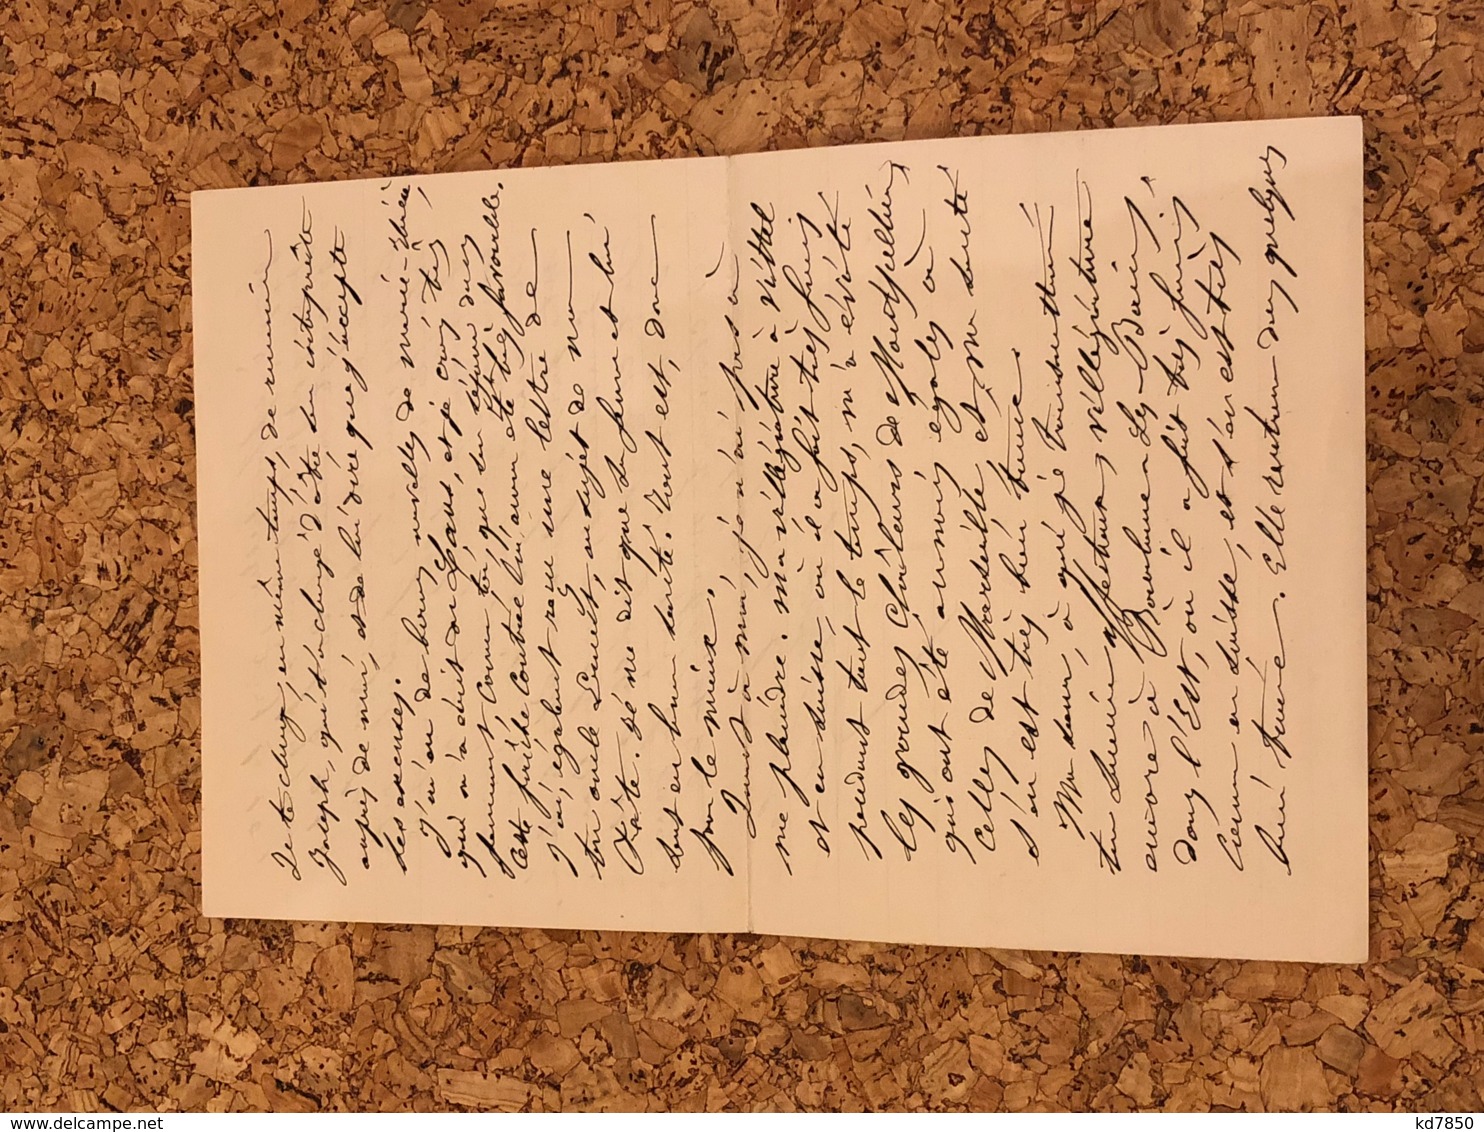 Je te charge, en même temps, de remercier
Joseph, qui t'a chargé d'être son interprète
auprès de moi, et de lui dire que j'accepte
ses excuses.
J'ai eu de bonnes nouvelles de
qui m'a écrit et je crois très
comme toi, que son séjour dans
cette fraîche contrée lui aura été très favorable.
J'ai également reçu une lettre de
ton oncle au sujet de mon
Il me dit que sa femme et lui
sont en bonne santé. Tout est, donc
pour le mieux.
Quant à moi, je n'ai pas à
me plaindre. Ma villégiature à Vittel
et en Suisse, où il a fait très frais
pendant tout le temps, m'a évité
les grandes chaleurs de Montpellier,
qui ont été au moins égales à
celles de Marseille et, ma santé
s'en est très bien trouvée.
Ma sœur, à qui je
ton affectueux villégiature
encore à Bourbonne-les-Bains,
dans l'Est, où il a fait très frais
comme en Suisse, et s'en est très
bien trouvée. Elle rentrera dans quelques
delcampe.net
kd7850